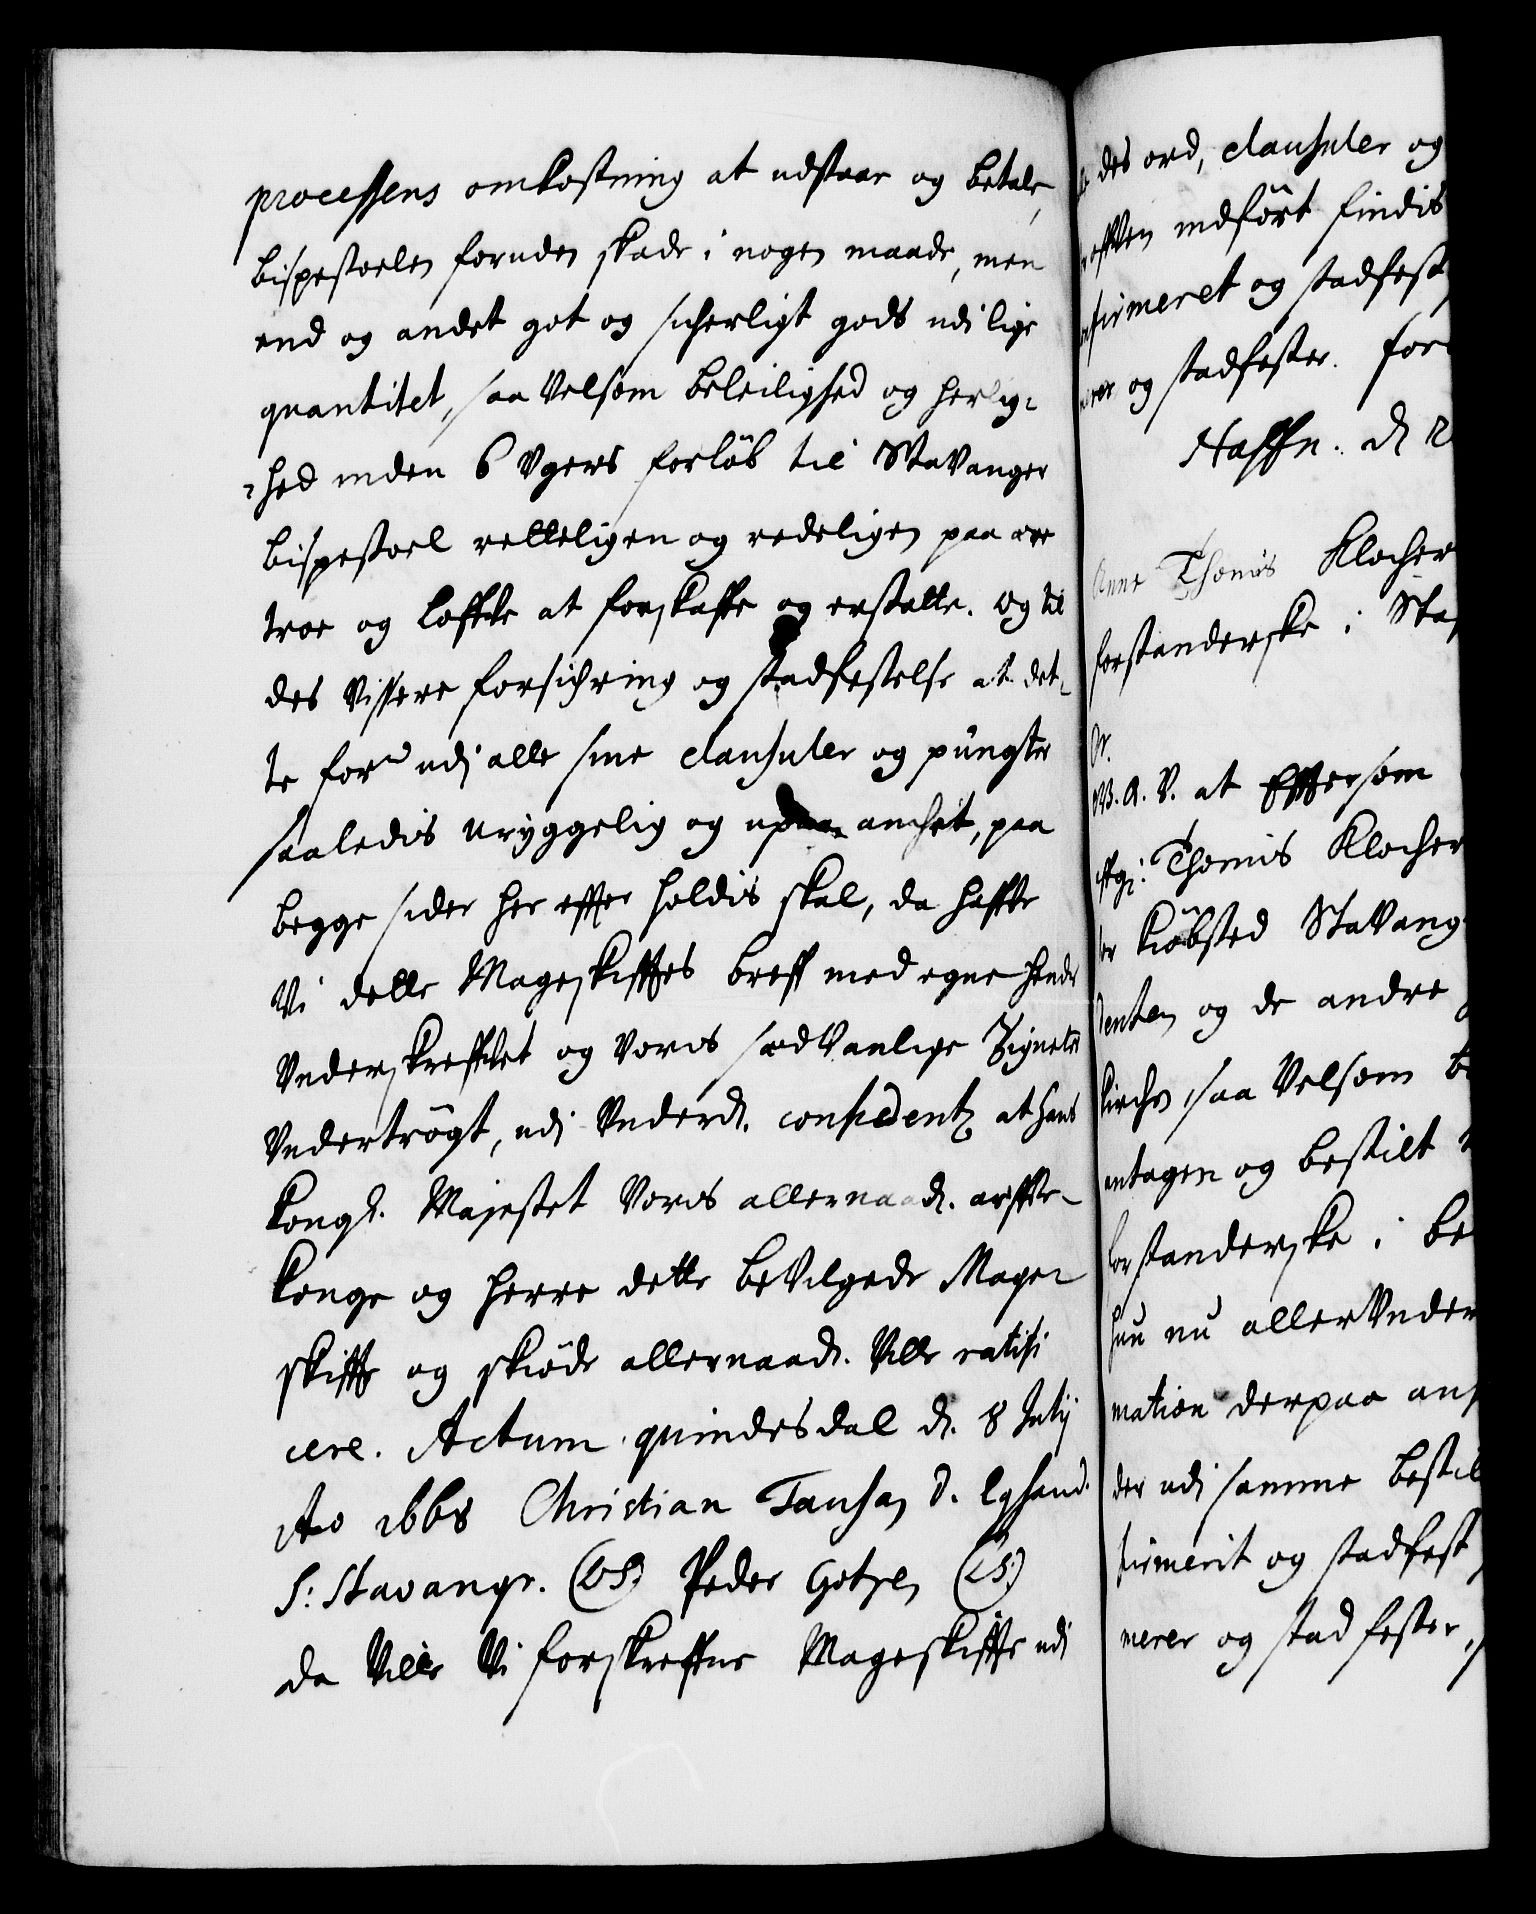 processens omkostning at udstaae og betale,
bispestoelen foruden skade i nogen maade, men
end og andet got og sicherligt gods udi lige
quantitet, saa Velsom beleilighed og herlig-
-hed inden 6 Vgers forløb til StaVanger
bispestoel retteligen og redeligen paa ære
troe og loffve at forskaffe og erstatte. og til
des Vissere forsichring og stadfestelse at det-
te for.ne udi alle sine clausuler og püngter
saaledis Vryggelig og anchet, paa
begge sider her effter holdis skal, da haffve
Vi dette Mageskifftes breff med egne hender
Vnderskreffvet og Voris sædVanlige Zigneter
Vndertrögt, udi Vnderd. confidentz at hans
kongl. Majestet Voris allernaad. arffve-
konge og herre dette beVilgede Mage-
skiffte og skiøde allernaad. Ville ratifi
cere. Actum quindesdal d. 8 Julij
Ao 1668 Christian Tausan D. Eghand.
S: Stavangr. (LS.) Peder Gotzen (LS.)
da Ville Vi forskreffne Mageskiffte udi
des ord, clausuler og
indført findis
firmeret og stadfest
og stadfester. for
Haffn. d. 2
Anne Thomis Klocher
forstanderske i Sta
Gr.
W.A.V. at Efftersom
Thomis Klocher
kiøbsted StaVang
og de andre
kirche, saa Velsom b
antagen og bestilt
forstanderske i be
hun nu allerVnder
mation derpaa an
der udi samme bestil
firmerit og stadfest
merer og stadfester,